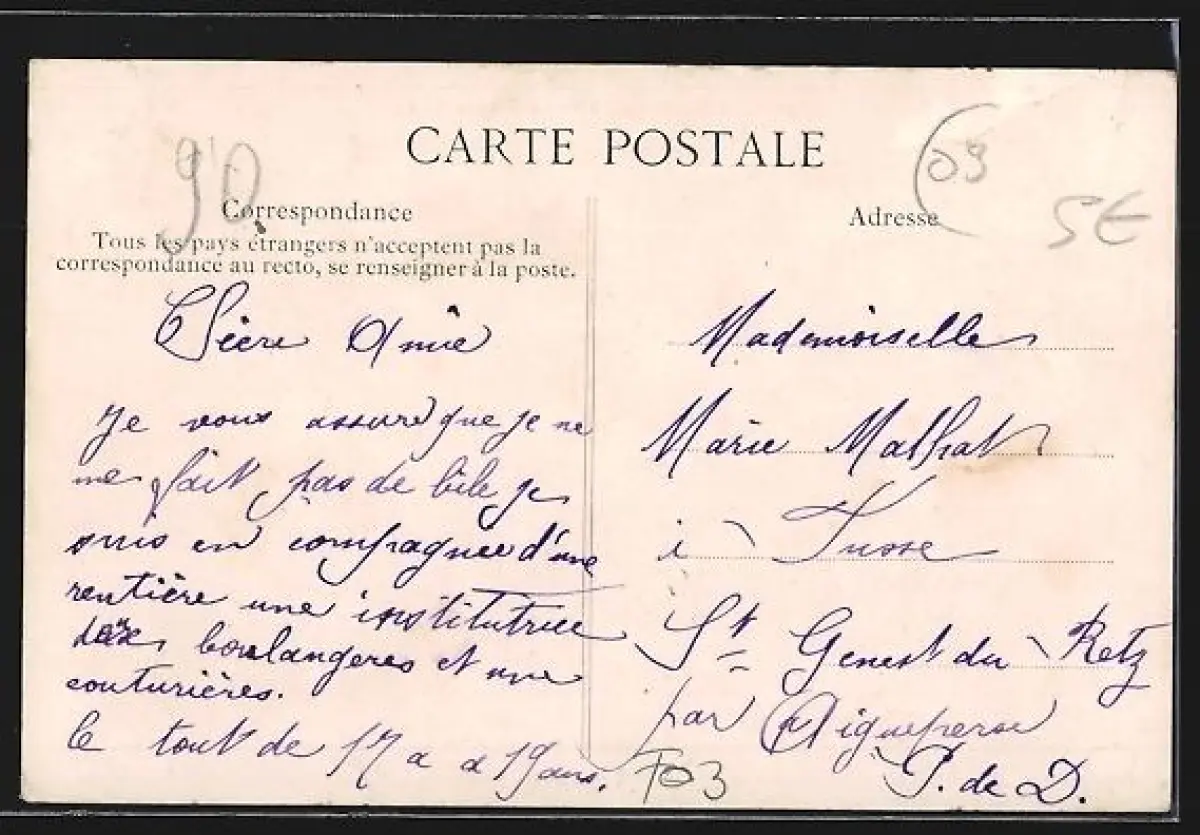 CARTE POSTALE
90
03
5€
Correspondance
Tous les pays étrangers n'acceptent pas la
correspondance au recto, se renseigner à la poste.
Adresse
Chère Amie
Je vous assure que je ne
me fait pas de bile je
suis en compagnie d'une
rentière une institutrice
deux boulangères et une
couturières.
le tout de 17 a a 19 ans.
Mademoiselle
Marie Malhat
à
St Genest du Retz
par Aigueperse
P. de D.
T03